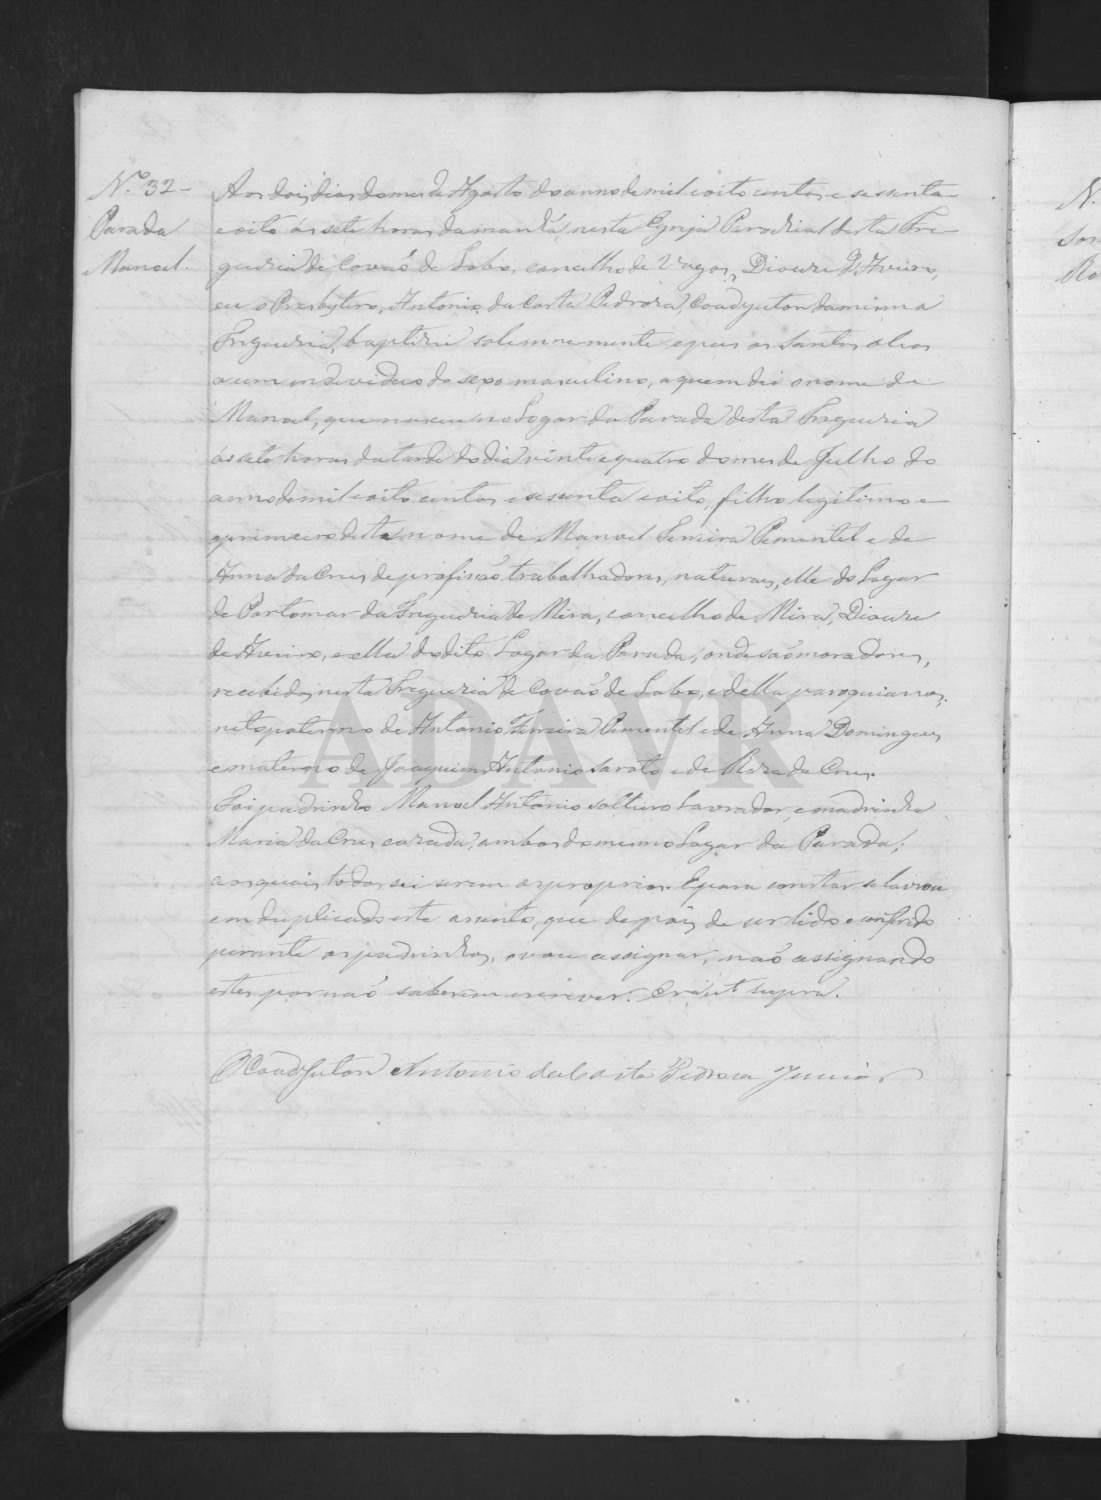 N.º 32-
Parada
Manoel.
Aos dois dias do mes de Agosto do anno de mil oito centos e sessenta
e oito ás sete horas da manhã, nesta Egreja Parochial desta Fre-
guezia de Covaõ de Lobo, concelho de Vagos, Diocese d'Aveiro,
eu o Presbytero, Antonio da Costa Pedroza, Coadjutor da mesma
Freguezia, baptizei solemnemente e puz os Santos oleos
a um individuo do sexo masculino, a quem dei o nome de
Manoel, que nasceu no Logar da Parada desta Freguezia
ás sete horas da tarde do dia vinte e quatro do mes de Julho do
anno de mil oito centos e sessenta e oito, filho legitimo e
primeiro deste nome de Manoel Ferreira Pimentel e de
Anna da Cruz de profissaõ trabalhadores, naturaes, elle do Logar
de Portomar da Freguezia de Mira, concelho de Mira, Diocese
de Aveiro, e ella do dito Logar da Parada, onde saõ moradores,
recebidos nesta Freguezia de Covaõ de Lobo, e della paroquianos,
neto paterno de Antonio Ferreira Pimentel e de Anna Domingues,
e materno de Joaquim Antonio Sarato e de Roza da Cruz.
Foi padrinho Manoel Antonio solteiro Lavrador, e madrinha
Maria da Cruz cazada, ambos do mesmo Logar da Parada,
aos quais todos sei serem os proprios. E para constar se lavrou
em duplicado este assento, que depois de ser lido e conferido
perante os padrinhos, o vou assignar, naõ assignando
estes por naõ saberem escrever. Era ut supra.
O Coadjutor Antonio da Costa Pedroza Junior
N.
Ro
ADAVR